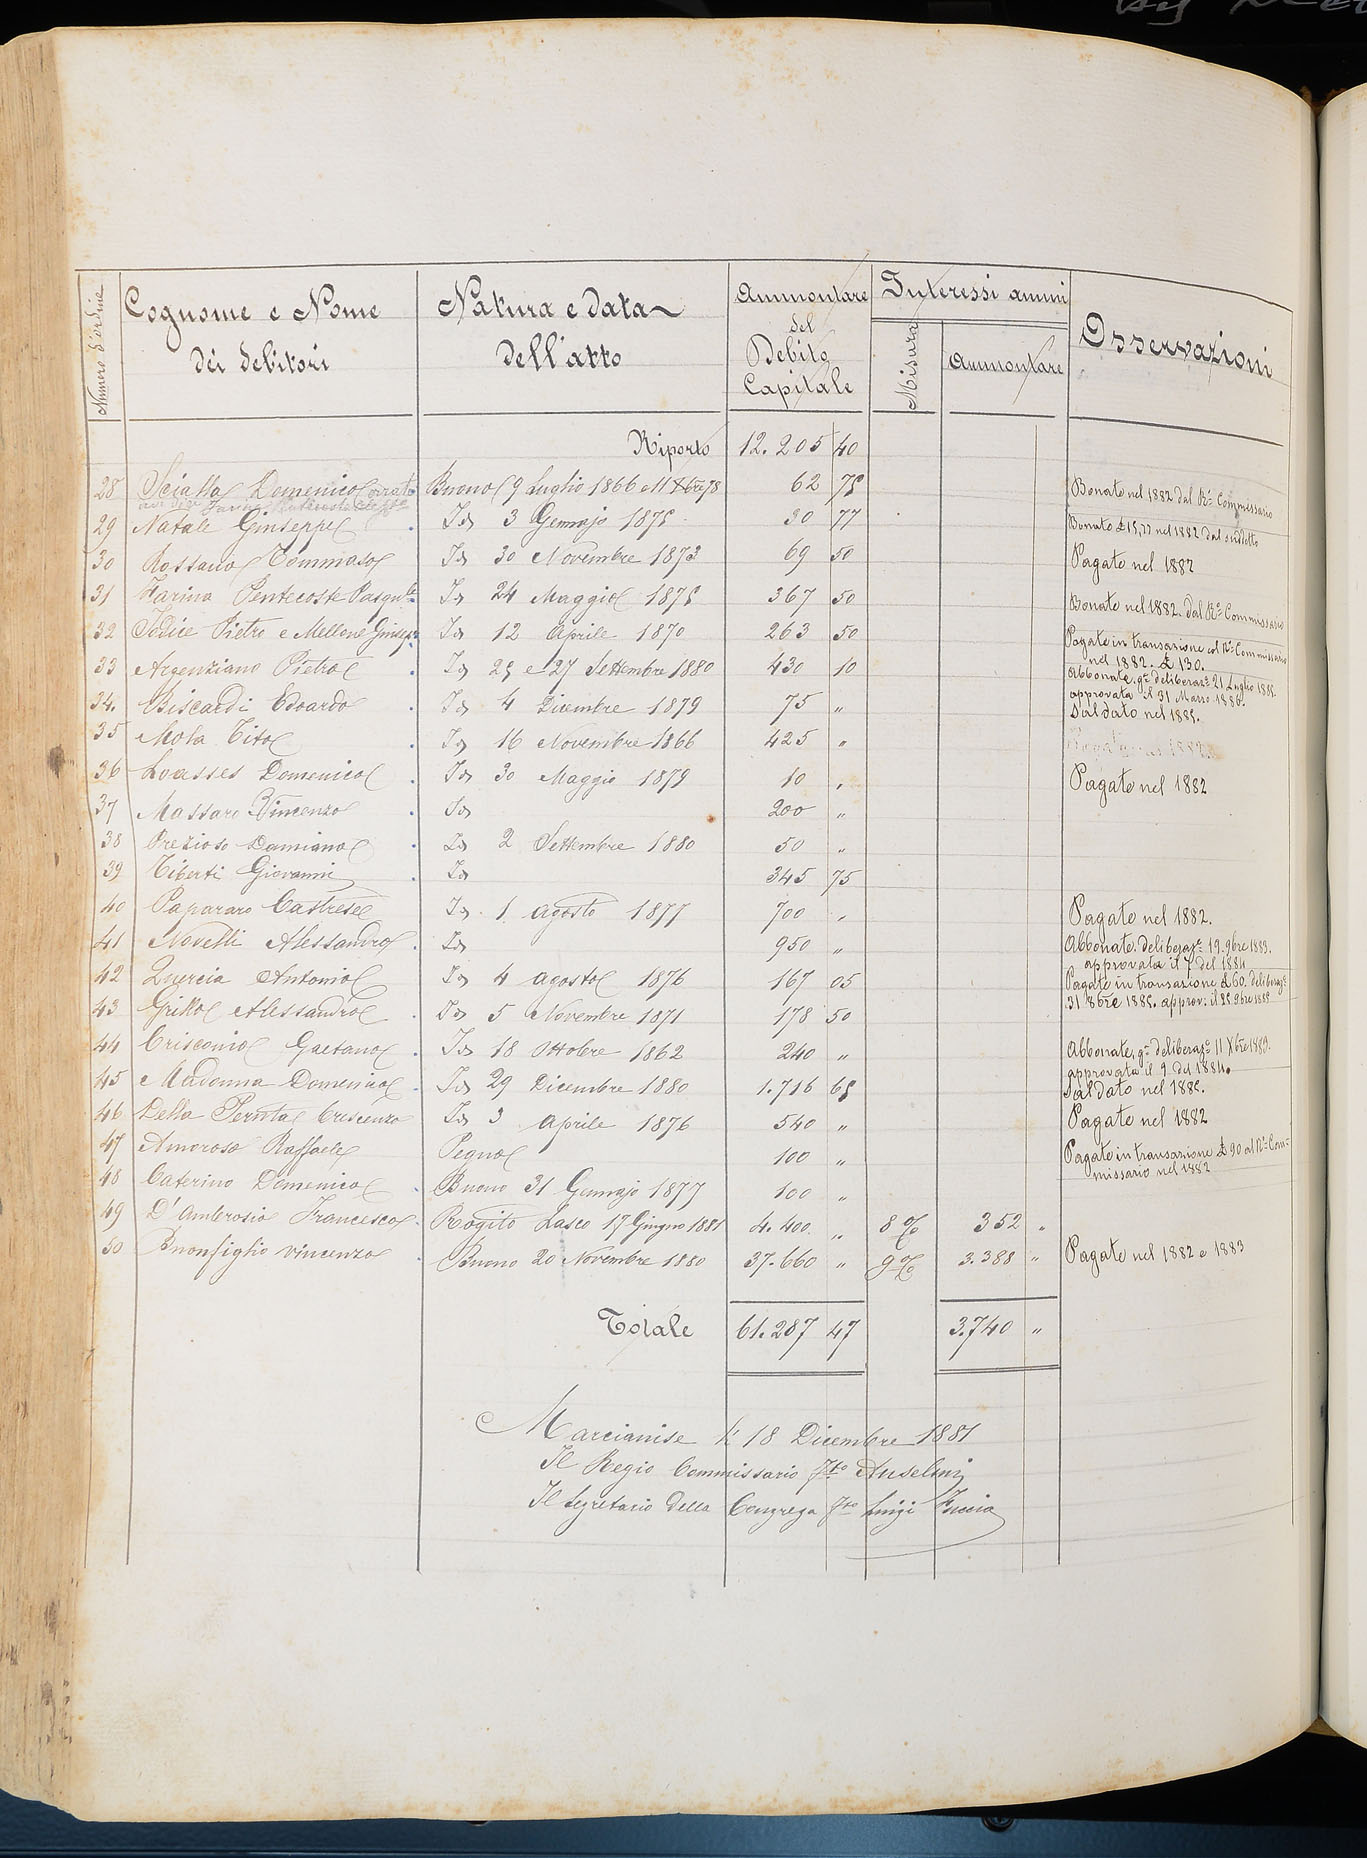 Numero d'ordine
Cognome e Nome
dei debitori
Natura e data
dell'atto
Ammontare
del
Debito
Capitale
Interessi annui
Misura
Ammontare
Osservazioni
Riporto 12.205 40
28 Sciatta Domenico Buono 9 Luglio 1866 e 11 Xbre 78 62 75 Bonato nel 1882 dal Ro. Commissario
29 Natale Giuseppe Id 3 Gennajo 1875 30 77 Bonato £ 15,77 nel 1882 dal suddetto
30 Rossano Tommaso Id 30 Novembre 1873 69 50 Pagato nel 1882
31 Farina Pentecoste Pasqule Id 24 Maggio 1875 367 50 Bonato nel 1882. dal Ro. Commissario
32 Iodice Pietro e Mellone Giusepe Id 12 Aprile 1870 263 50 Pagato in transazione col Ro. Commissario
nel 1882. £ 130.
33 Argenziano Pietro Id 25 e 27 Settembre 1880 430 10 Abbonate, ge. deliberaze. 21 Luglio 1885.
approvata il 31 Marzo 1886.
34. Biscardi Edoardo Id 4 Dicembre 1879 75 " Saldato nel 1885.
35 Mola Tito Id 16 Novembre 1866 425 "
36 Loasses Domenico Id 30 Maggio 1879 10 " Pagato nel 1882
37 Massaro Vincenzo Id 200 "
38 Prezioso Damiano Id 2 Settembre 1880 50 "
39 Tiberti Giovanni Id 345 75
40 Papararo Castrese Id 1 Agosto 1877 700 " Pagato nel 1882.
41 Novelli Alessandro Id 950 " Abbonato. deliberaze. 19. 9bre 1883.
approvata il 7 del 1884
42 Quercia Antonio Id 4 Agosto 1876 167 05 Pagato in transazione £ 60. deliberaze.
31 8bre 1885. approv: il 25 9bre 1885
43 Grillo Alessandro Id 5 Novembre 1871 178 50
44 Crisconio Gaetano Id 18 Ottobre 1862 240 " Abbonate, ge. deliberaze. 11 Xbre 1883.
approvata il 9 del 1884.
45 Madonna Domenico Id 29 Dicembre 1880 1.716 65 Saldato nel 1885.
46 Della Peruta Crescenzo Id 3 Aprile 1876 540 " Pagato nel 1882
47 Amoroso Raffaele Pegno 100 " Pagato in transazione £ 90 al Ro. Com-
missario nel 1882
48 Caterino Domenico Buono 31 Gennajo 1877 100 "
49 D'Ambrosio Francesco Rogito Lasco 17 Giugno 1881 4.400 " 8 % 352 "
50 Buonfiglio Vincenzo Buono 20 Novembre 1880 37.660 " 9 % 3.388 " Pagato nel 1882 e 1883
Totale 61.287 47 3.740 "
Marcianise li 18 Dicembre 1881
Il Regio Commissario Fto Anselmi
Il Segretario della Congrega Fto Luigi Fuccia